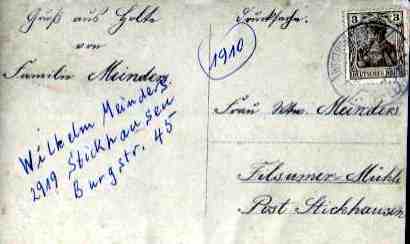 Gruß aus Holte
von
Familie Meinders
Wilhelm Meinders
2919 Stickhausen
Burgstr. 45
Drucksache.
1910
3 3
DEUTSCHES REICH
Frau Ww. Meinders
Filsumer Mühle
Post Stickhausen